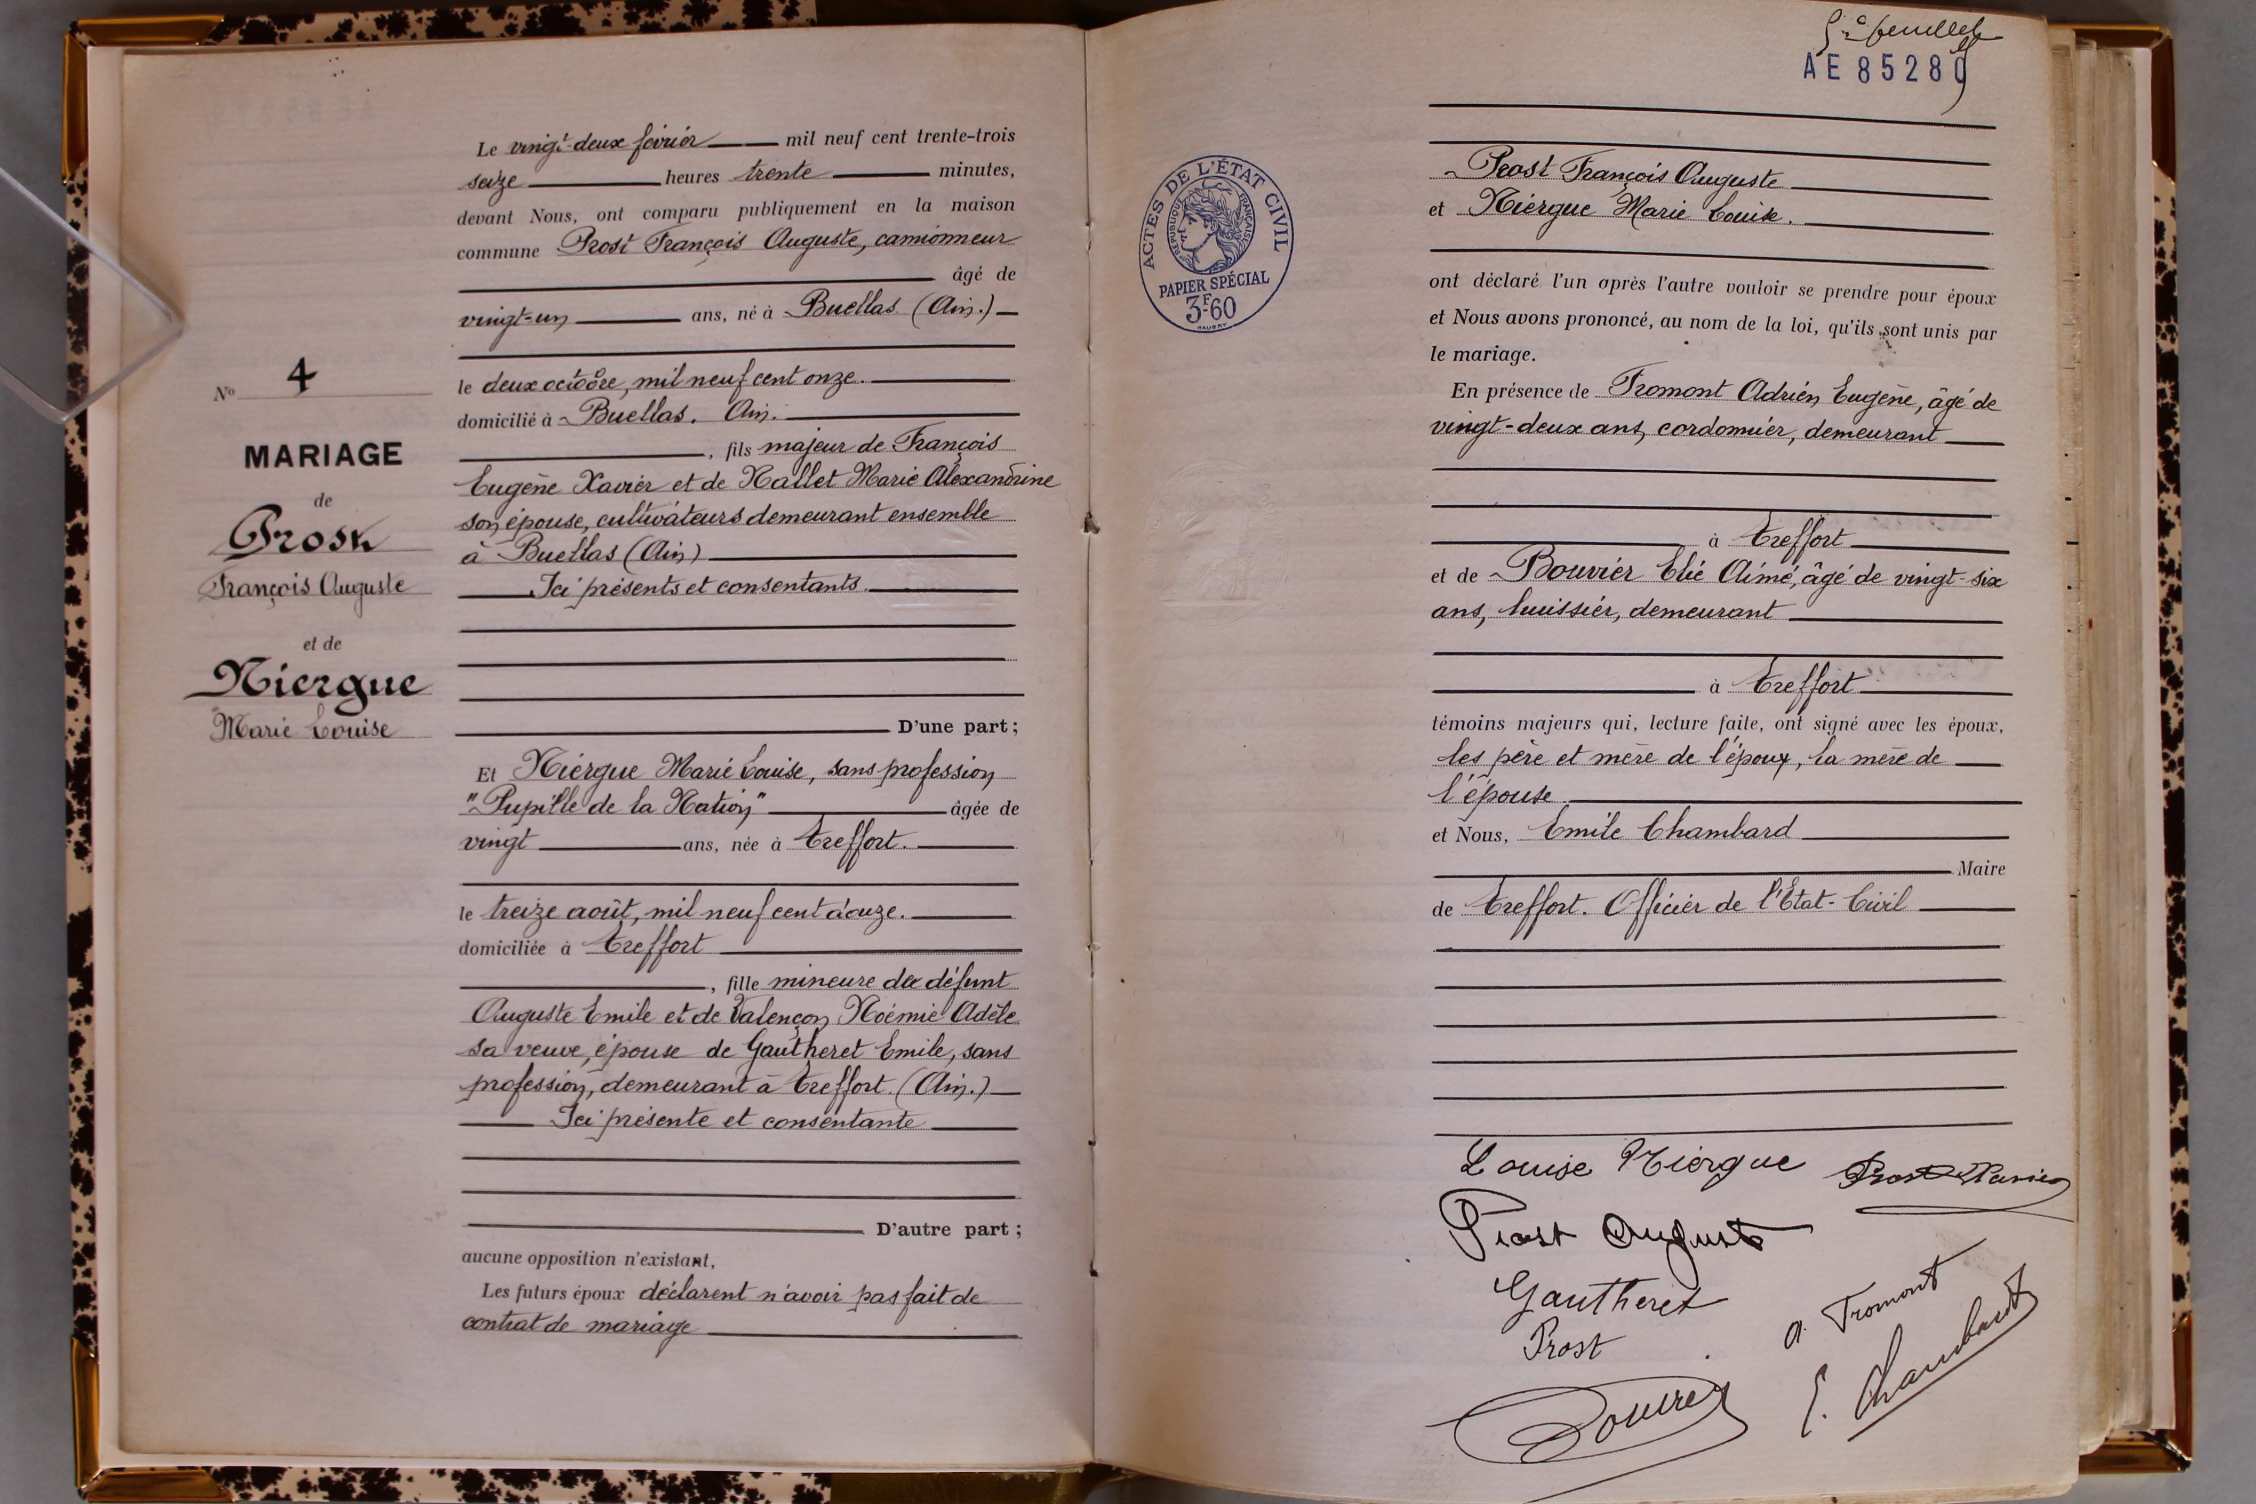 Le vingt-deux février mil neuf cent trente-trois
seize heures trente minutes,
devant Nous, ont comparu publiquement en la maison
commune Prost François Auguste, camionneur
âgé de
vingt-un ans, né à Buellas (Ain.)
le deux octobre, mil neuf cent onze.
domicilié à Buellas. Ain.
, fils majeur de François
Eugène Xavier et de Nallet Marie Alexandrine
son épouse, cultivateurs demeurant ensemble
à Buellas (Ain)
Ici présents et consentants.
D'une part ;
Et Niergue Marie Louise, sans profession
"Pupille de la Nation" âgée de
vingt ans, née à Treffort.
le treize août, mil neuf cent douze.
domiciliée à Treffort
, fille mineure de défunt
Auguste Emile et de Valençon Noémie Adèle
sa veuve, épouse de Gautheret Emile, sans
profession, demeurant à Treffort. (Ain.)
Ici présente et consentante
D'autre part ;
aucune opposition n'existant,
Les futurs époux déclarent n'avoir pas fait de
contrat de mariage
No 4
MARIAGE
de
Prost
François Auguste
et de
Niergue
Marie Louise
5e feuillet
AE 85280
ACTES DE L'ÉTAT CIVIL
RÉPUBLIQUE FRANÇAISE
PAPIER SPÉCIAL
3F.60
Prost François Auguste
et Niergue Marie Louise.
ont déclaré l'un après l'autre vouloir se prendre pour époux
et Nous avons prononcé, au nom de la loi, qu'ils sont unis par
le mariage.
En présence de Fromont Adrien Eugène, âgé de
vingt-deux ans, cordonnier, demeurant
à Treffort
et de Bouvier Elie Aimé, âgé de vingt-six
ans, huissier, demeurant
à Treffort
témoins majeurs qui, lecture faite, ont signé avec les époux,
les père et mère de l'époux, la mère de
l'épouse
et Nous, Emile Chambard
Maire
de Treffort. Officier de l'Etat-Civil
Louise Niergue Prost Xavier
Prost Auguste
Gautheret
Prost
a. Fromont
E. Chambard